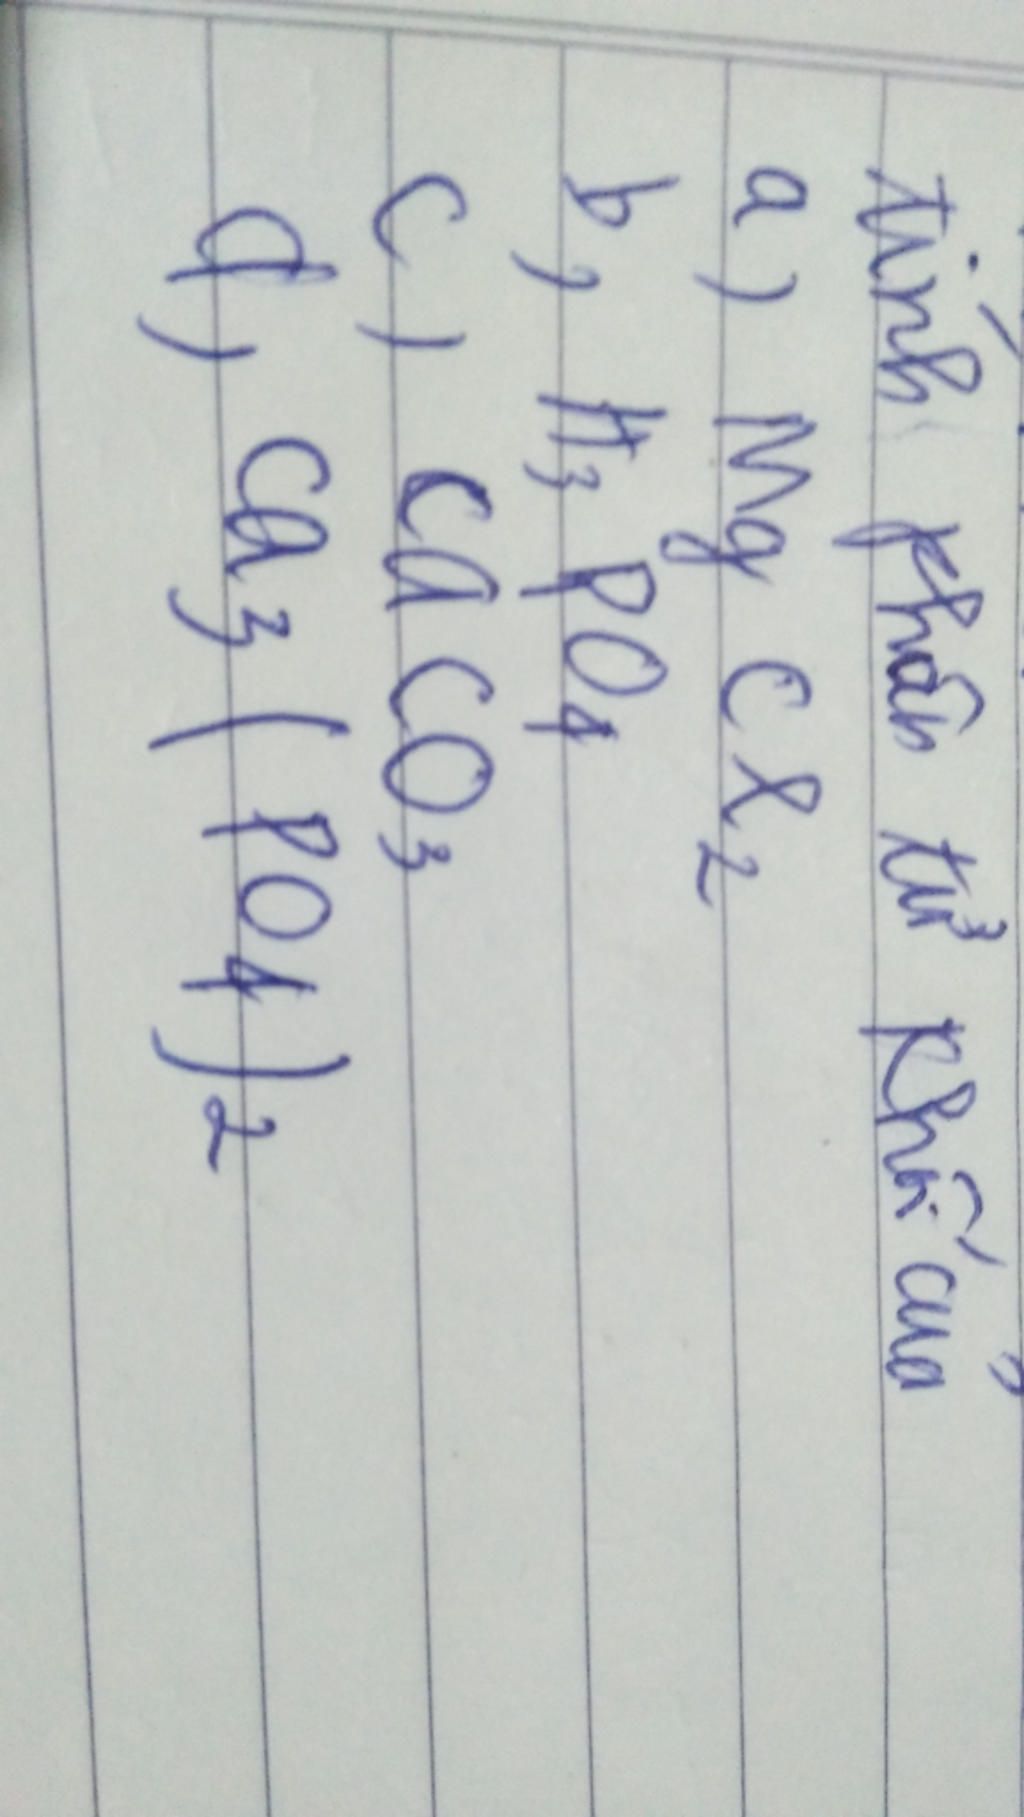 tính phân tử khối của
a) MgCl₂
b, H₃PO₄
c) CaCO₃
d) Ca₃(PO₄)₂